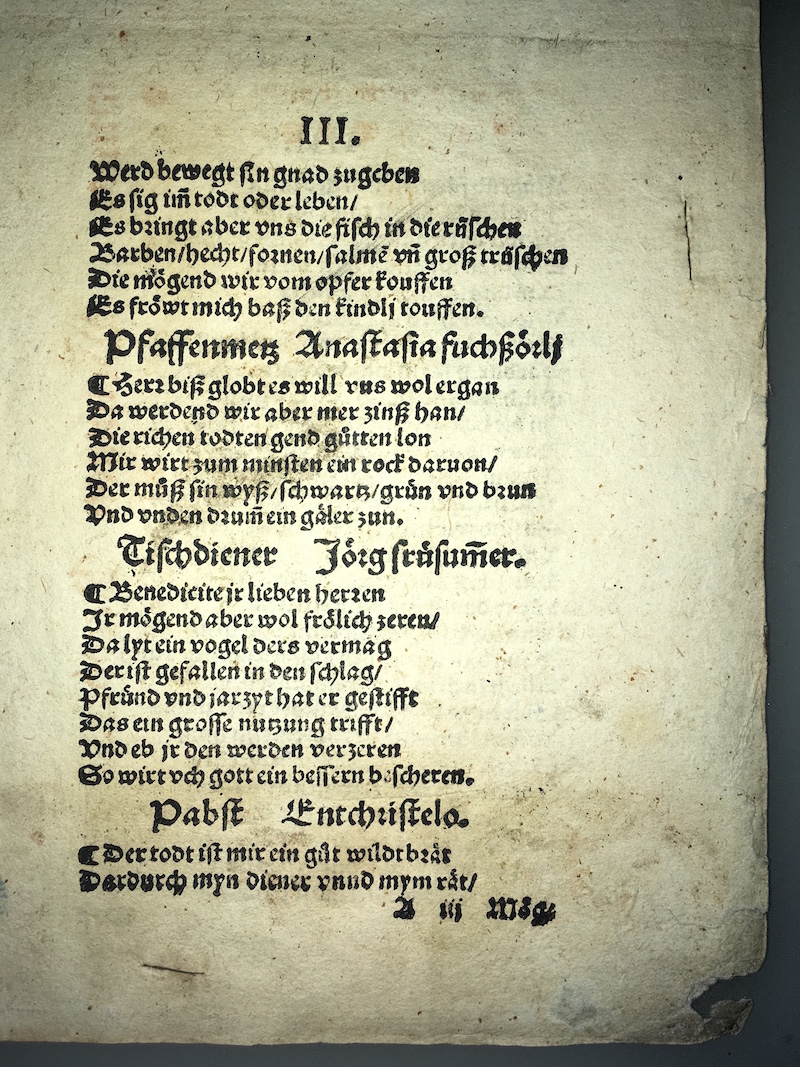 III.
Werd bewegt sin gnad zugeben
Es sig im̃ todt oder leben/
Es bringt aber vns die fisch in die rüschen
Barben/hecht/fornen/salmē vñ groß trüschen
Die mögend wir vom opfer kouffen
Es fröwt mich baß den kindlj touffen.
Pfaffenmetz Anastasia fuchßörlj
¶ Herr biß globt es will vns wol ergan
Da werdend wir aber mer zinß han/
Die richen todten gend gůtten lon
Mir wirt zum minsten ein rock daruon/
Der můß sin wyß/schwartz/grün vnd brun
Vnd vnden drum̃ ein gäler zun.
Tischdiener Jörg srüsum̃er.
¶ Benedicite jr lieben herren
Jr mögend aber wol frölich zeren/
Da lyt ein vogel ders vermag
Der ist gefallen in den schlag/
Pfründ vnd jarzyt hat er gestifft
Das ein grosse nutzung trifft/
Vnd eb jr den werden verzeren
So wirt vch gott ein bessern bescheren.
Pabst Entchristelo.
¶ Der todt ist mir ein gůt wildtbrät
Dardurch myn diener vnnd mym rät/
A iij Mög⸗